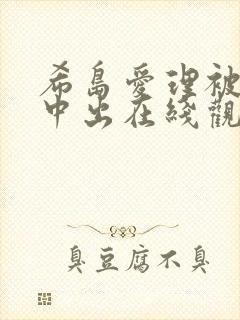 希島愛理被
中出在綫觀
臭豆腐不臭